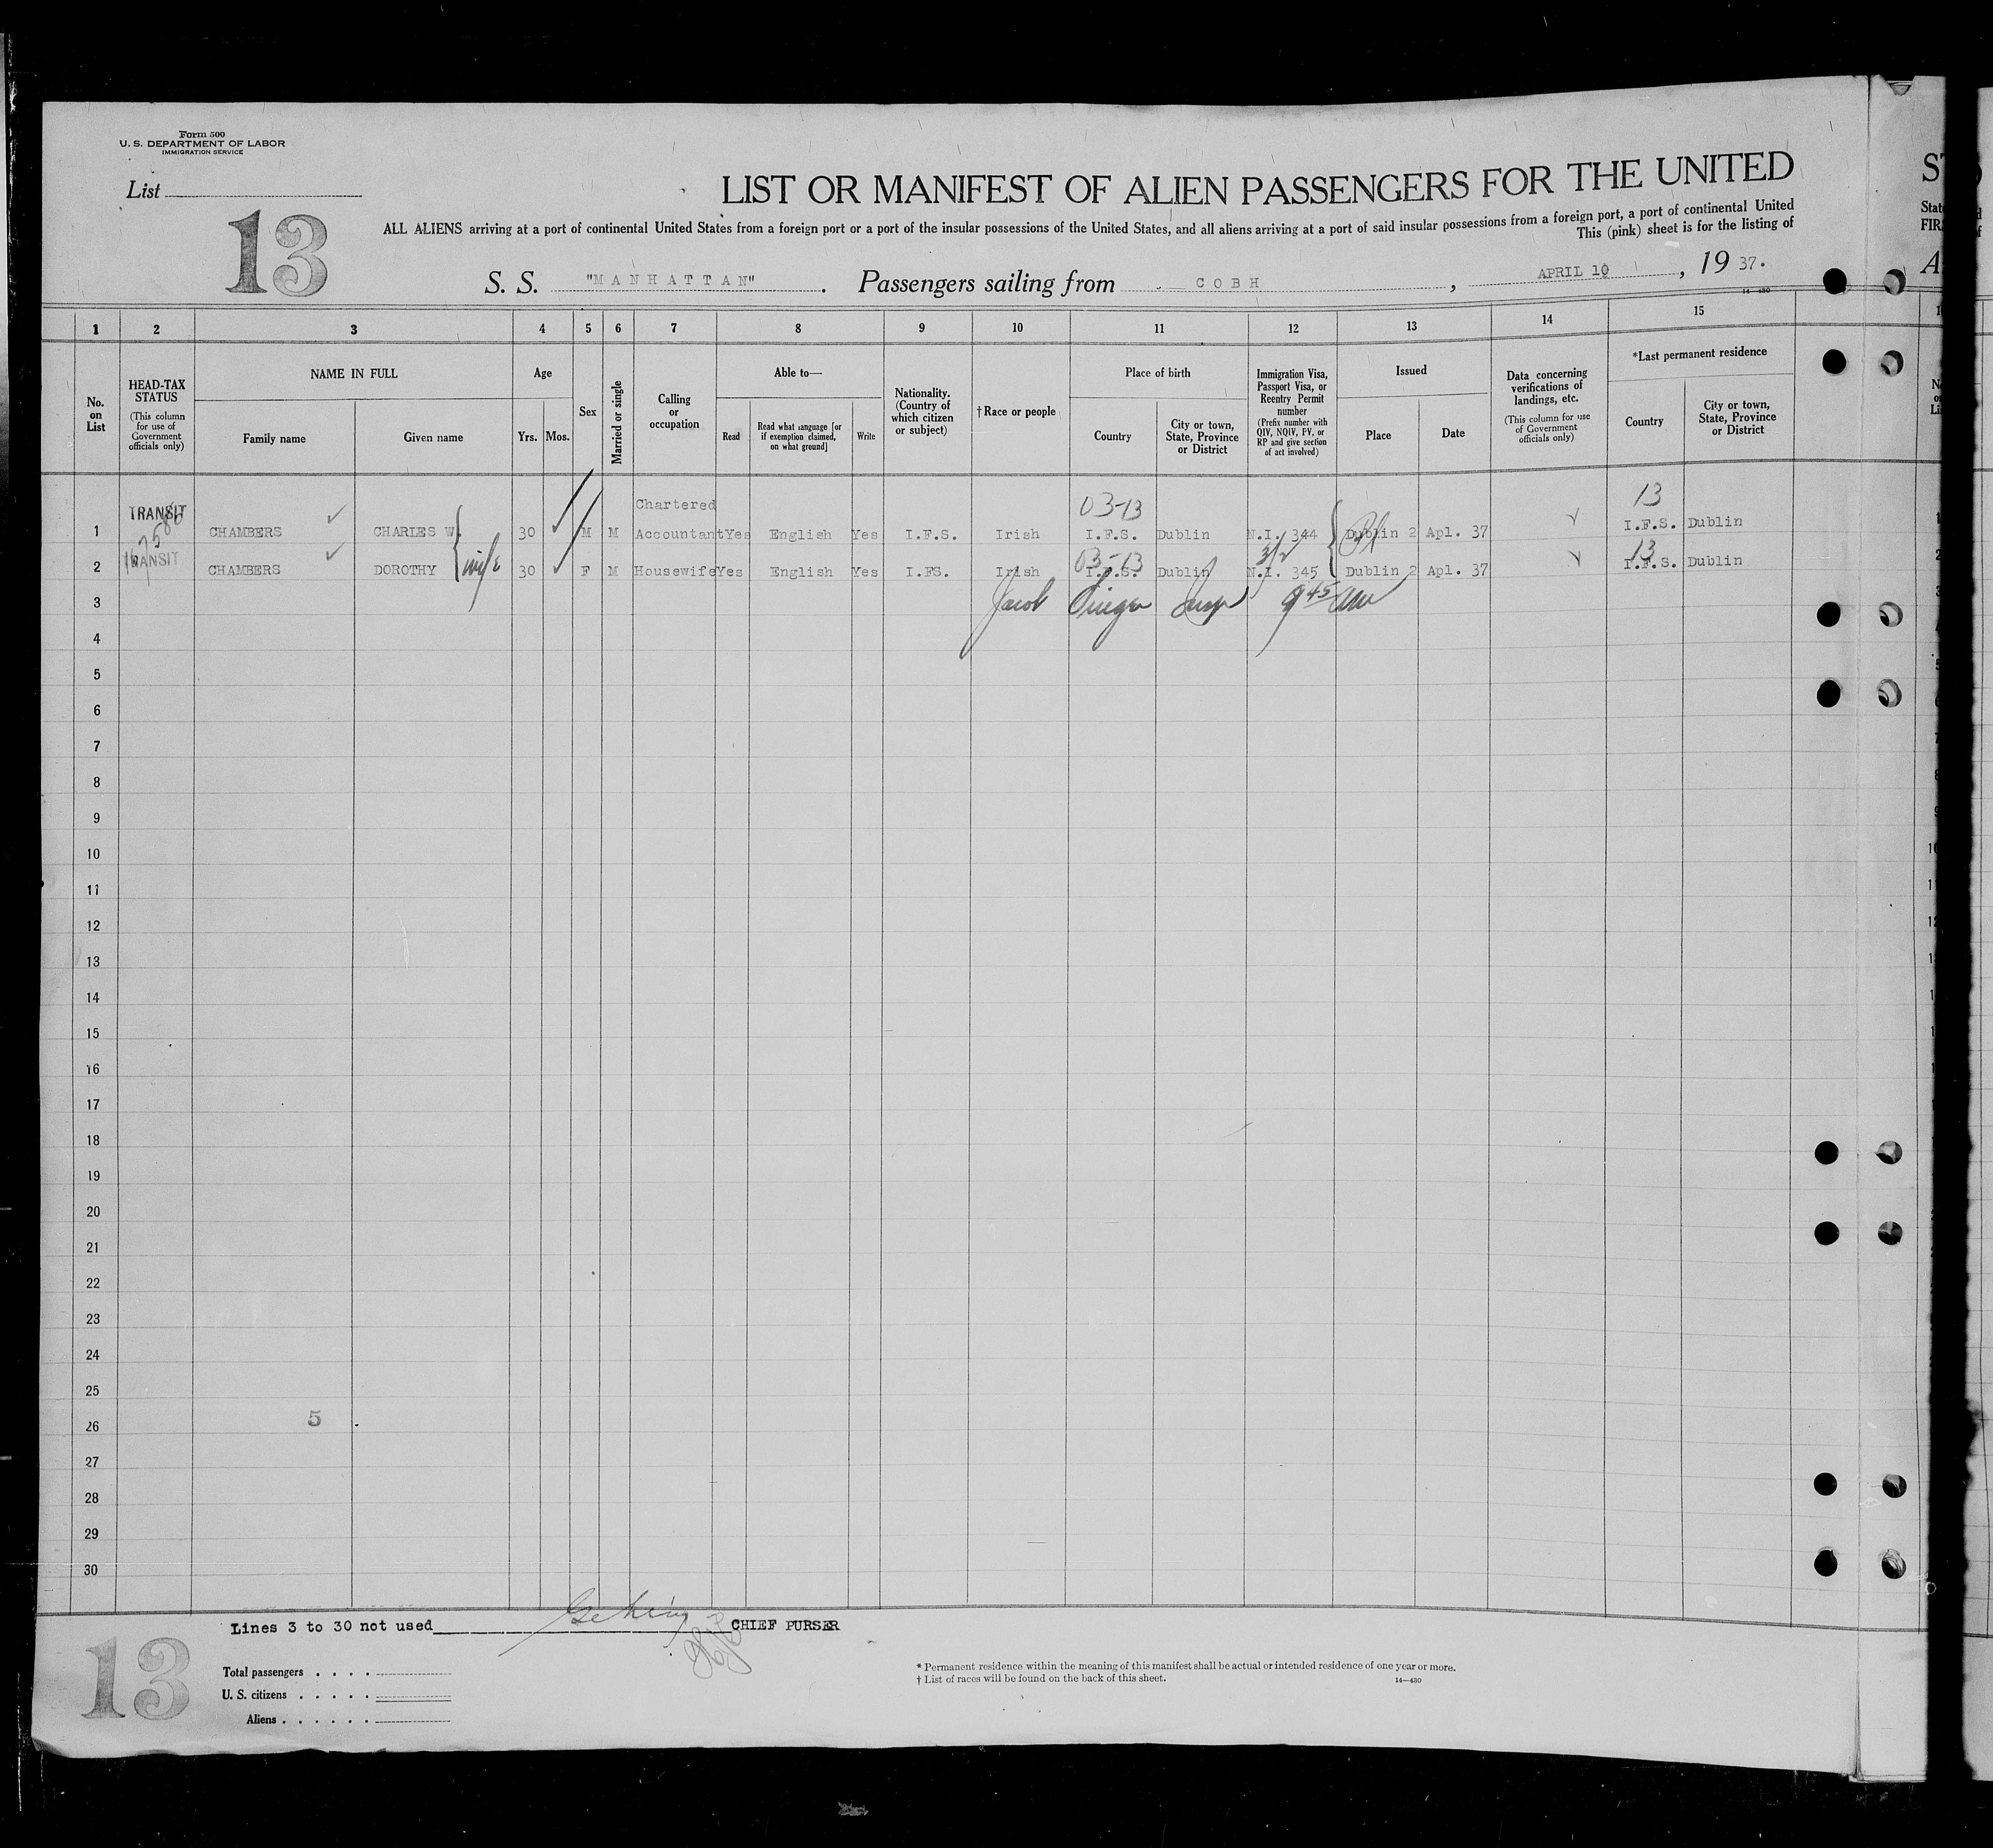 Form 500
U. S. DEPARTMENT OF LABOR
IMMIGRATION SERVICE
List
13
LIST OR MANIFEST OF ALIEN PASSENGERS FOR THE UNITED
ALL ALIENS arriving at a port of continental United States from a foreign port or a port of the insular possessions of the United States, and all aliens arriving at a port of said insular possessions from a foreign port, a port of continental United
This (pink) sheet is for the listing of
S. S. "MANHATTAN". Passengers sailing from COBH, APRIL 10, 19 37.
14—430
1 2 3 4 5 6 7 8 9 10 11 12 13 14 15
No. on List
HEAD-TAX STATUS
(This column for use of Government officials only)
NAME IN FULL
Family name
Given name
Age
Yrs. Mos.
Sex
Married or single
Calling or occupation
Able to—
Read
Read what language [or if exemption claimed, on what ground]
Write
Nationality. (Country of which citizen or subject)
†Race or people
Place of birth
Country
City or town, State, Province or District
Immigration Visa, Passport Visa, or Reentry Permit number
(Prefix number with QIV, NQIV, PV, or RP and give section of act involved)
Issued
Place
Date
Data concerning verifications of landings, etc.
(This column for use of Government officials only)
*Last permanent residence
Country
City or town, State, Province or District
03-13 13
1 TRANSIT CHAMBERS CHARLES W. 30 M M Chartered Accountant Yes English Yes I.F.S. Irish I.F.S. Dublin N.I. 344 Dublin 2 Apl. 37 I.F.S. Dublin
wife 3/2 03-13 13
2 TRANSIT CHAMBERS DOROTHY 30 F M Housewife Yes English Yes I.FS. Irish I.F.S. Dublin N.I. 345 Dublin 2 Apl. 37 I.F.S. Dublin
3 Jacob 9 45 am
4
5
6
7
8
9
10
11
12
13
14
15
16
17
18
19
20
21
22
23
24
25
26 5
27
28
29
30
Lines 3 to 30 not used CHIEF PURSER
13
Total passengers . . . .
U. S. citizens . . . . .
Aliens . . . . . .
* Permanent residence within the meaning of this manifest shall be actual or intended residence of one year or more.
† List of races will be found on the back of this sheet.
14—430